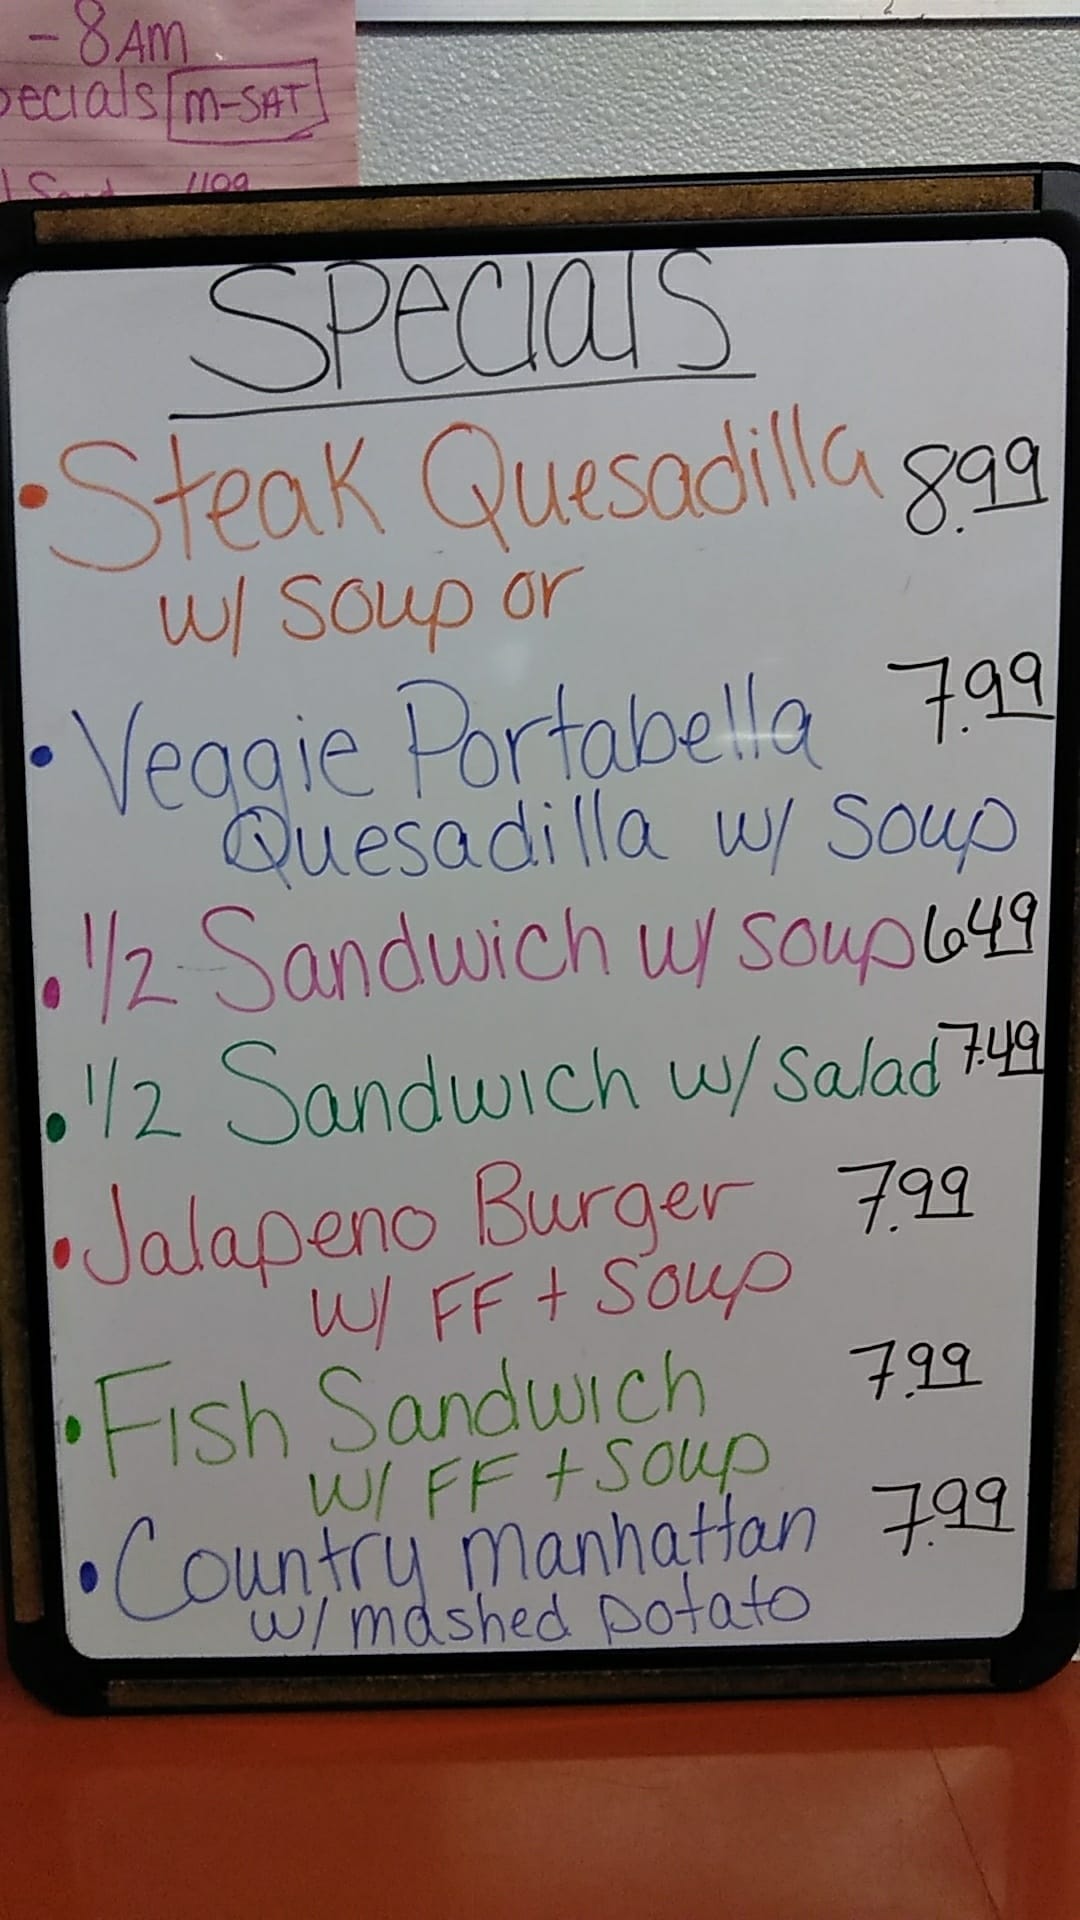 - 8AM
pecials M-SAT
Specials
• Steak Quesadilla 8.99
w/ Soup or
• Veggie Portabella 7.99
Quesadilla w/ Soup
• 1/2 Sandwich w/ soup 6.49
• 1/2 Sandwich w/ Salad 7.49
• Jalapeno Burger 7.99
w/ FF + Soup
• Fish Sandwich 7.99
w/ FF + Soup
• Country Manhattan 7.99
w/ mashed potato